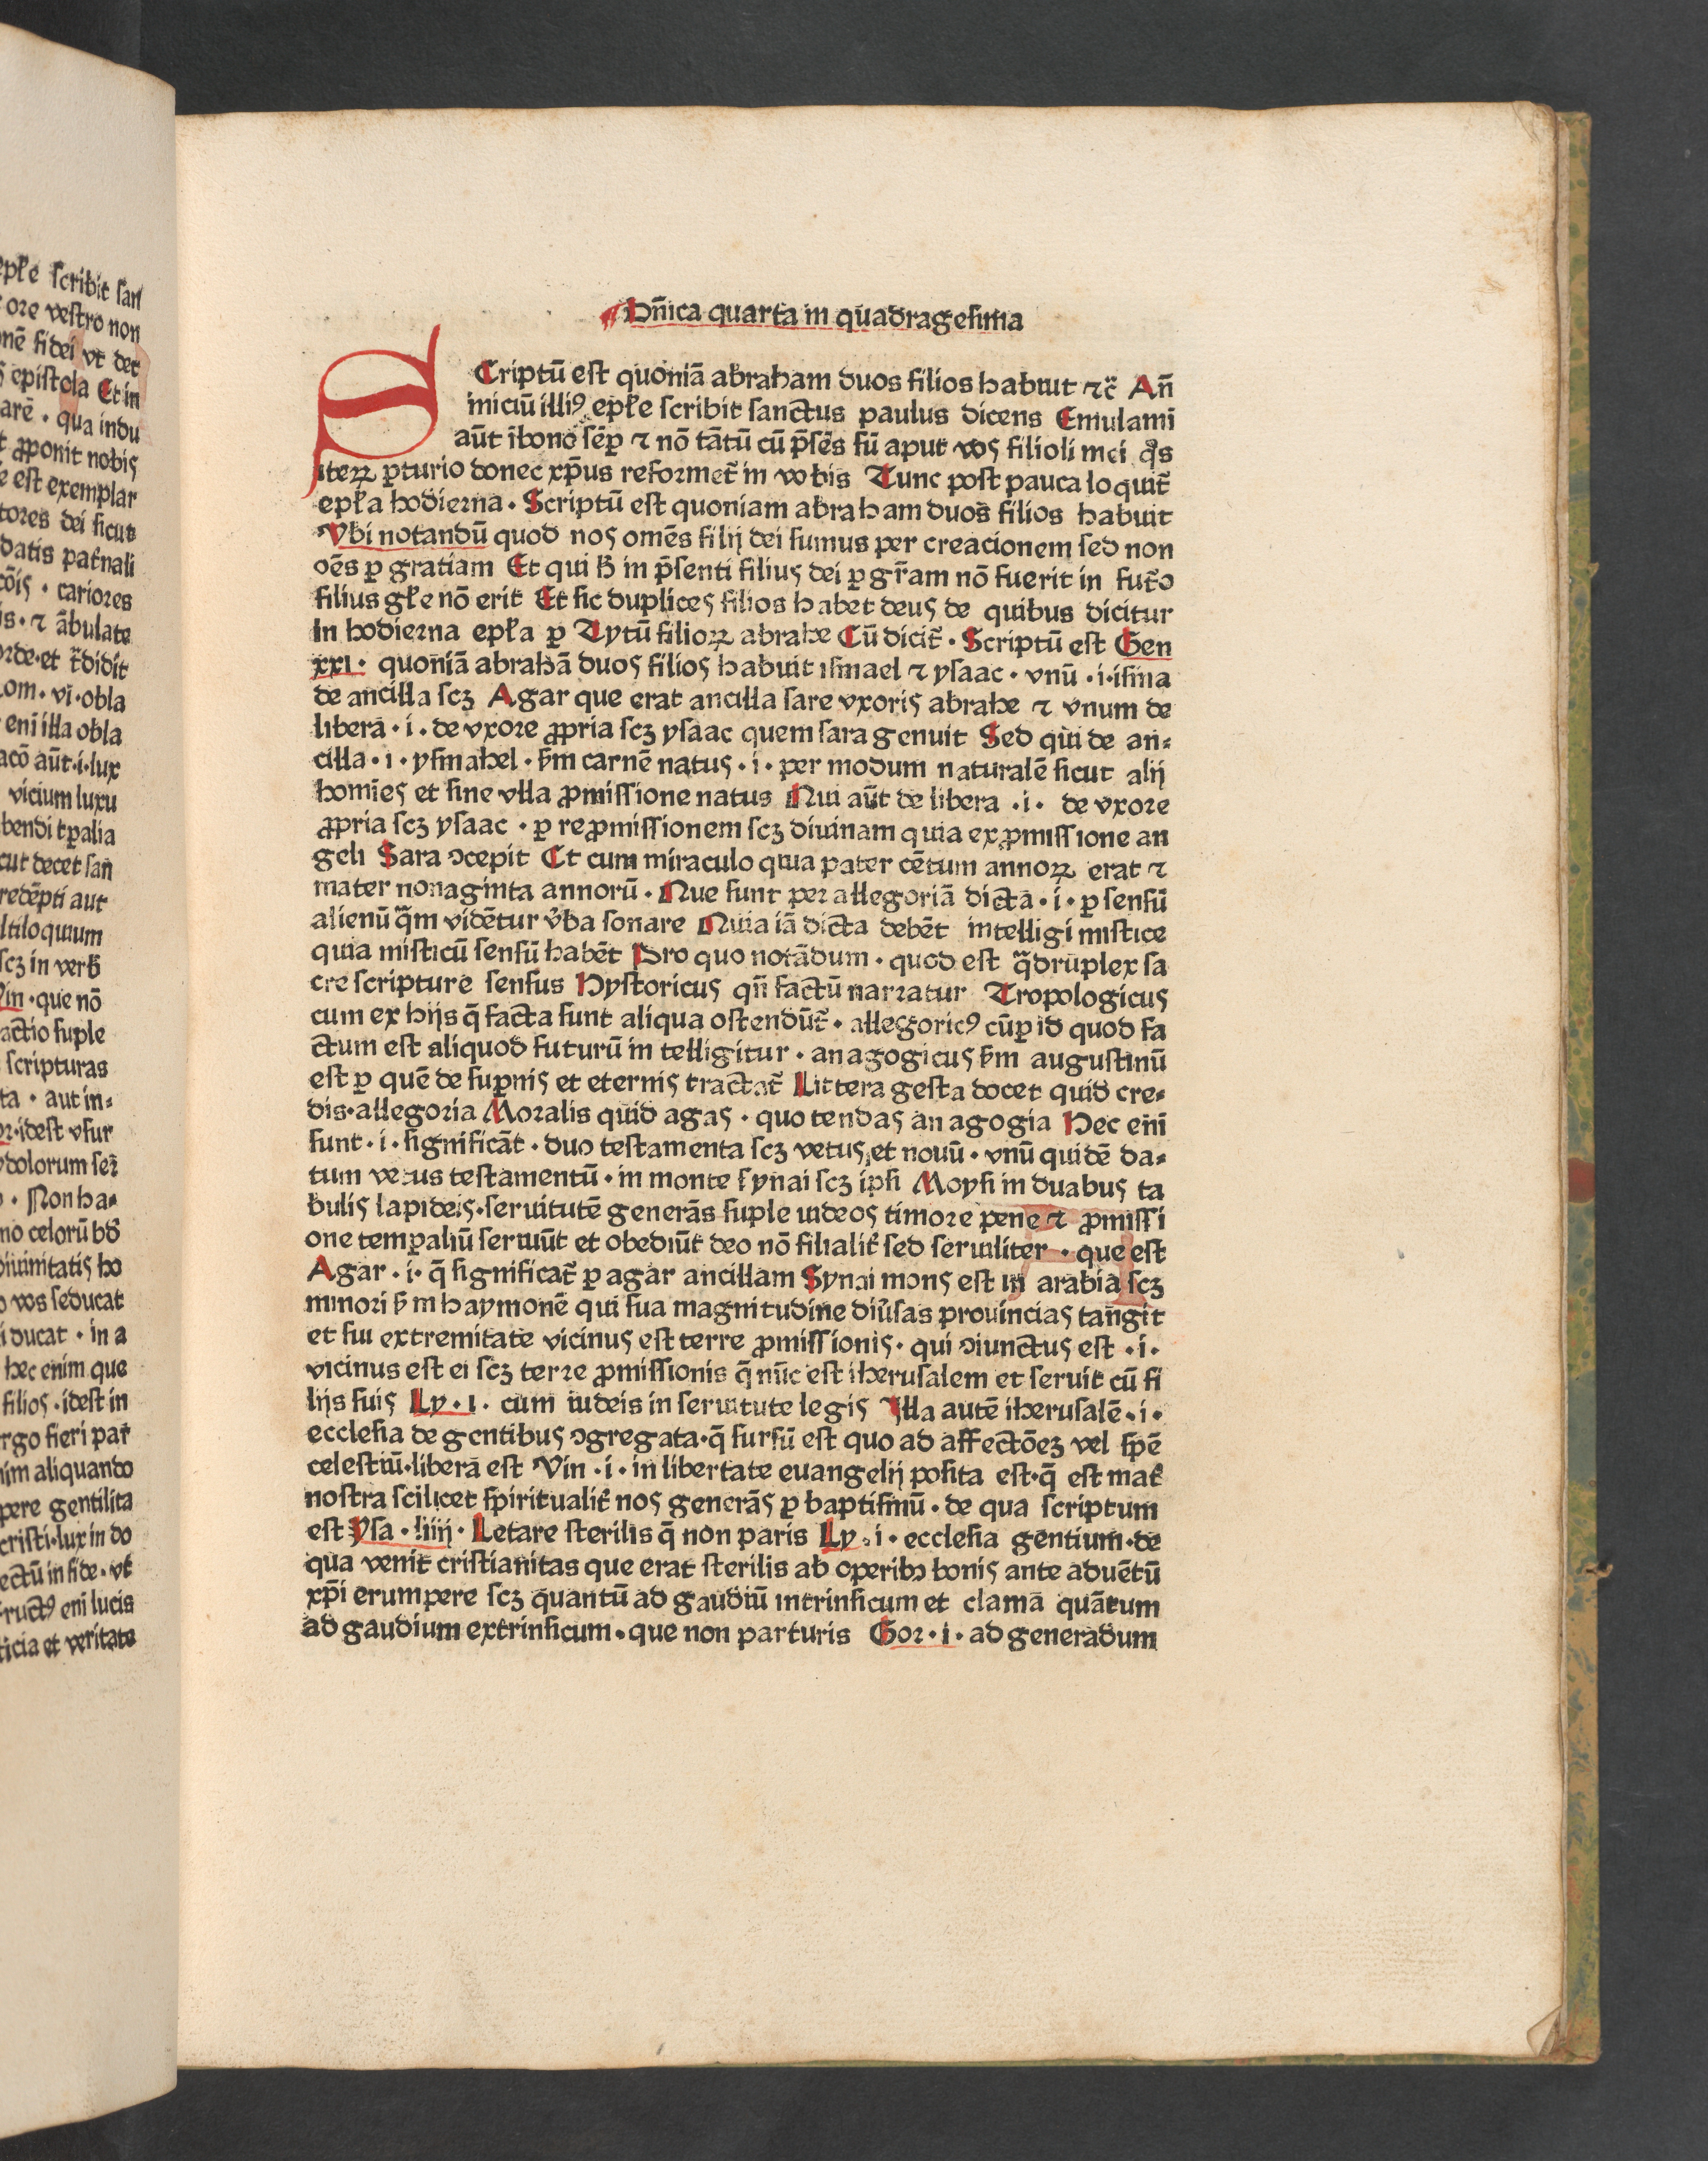 epłe scribit san
ore vestro non
onē fidei vt det
epistola Et in
arē · qua indu
t ꝓponit nobis
e est exemplar
tores dei sicut
datis pat̄nali
cōis · cariores
is · ⁊ ābulate
orde · et t̄didit
om · vi · obla
enī illa obla
acō aūt · i · lux
vicium luxu
bendi tꝑalia
cut decet san̄
redēpti aut
ltiloquium
scꝫ in verb̄
Vin · que nō
actio suple
scripturas
ta · aut in⸗
or · idest vsur
ydolorum ser̄
Non ha⸗
no celorū hō
diuinitatis ho
o vos seducat
i ducat · in a
hec enim que
filios · idest in
rgo fieri par̄
nim aliquando
pere gentilita
cristi · lux in do
ectū in fide · vt
fructꝰ eni lucis
ticia et veritate
Dn̄ica quarta in quadragesima
SCriptū est quoniā abraham duos filios habuit ⁊c̄ An̄
iniciū illiꝰ epłe scribit sanctus paulus dicens Emulami
aūt ī bono sēꝑ ⁊ nō tātū cū p̄sēs sū aput vos filioli mei qͦs
iteꝝ ꝑturio donec xp̄us reformet̄ in vobis Tunc post pauca loquit̄
epła hodierna · Scriptū est quoniam abraham duos filios habuit
Vbi notandū quod nos omēs filij dei sumus per creacionem sed non
oēs ꝑ gratiam Et qui h̄ in p̄senti filius dei ꝑ gr̄am nō fuerit in fut̄o
filius głe nō erit Et sic duplices filios habet deus de quibus dicitur
In hodierna epła ꝑ Tytū filioꝝ abrahe Cū dicit̄ · Scriptū est Gen
xxi · quoniā abrahā duos filios habuit ismael ⁊ ysaac · vnū · i · isma
de ancilla scꝫ Agar que erat ancilla sare vxoris abrahe ⁊ vnum de
libera · i · de vxore ꝓpria scꝫ ysaac quem sara genuit Sed qui de an⸗
cilla · i · ysmahel · s̄m carnē natus · i · per modum naturalē sicut alij
homīes et sine vlla ꝓmissione natus Qui aūt de libera · i · de vxore
ꝓpria scꝫ ysaac · ꝑ reꝓmissionem scꝫ diuinam quia ex ꝓmissione an
geli Sara ↄcepit Et cum miraculo quia pater cētum annoꝝ erat ⁊
mater nonaginta annorū · Que sunt per allegoriā dicta · i · ꝑ sensū
alienū q̄m vidētur v̄ba sonare Quia iā dicta debēt intelligi mistice
quia misticū sensū habēt Pro quo notādum · quod est q̄druplex sa
cre scripture sensus Hystoricus qn̄ factū narratur Tropologicus
cum ex hijs q̄ facta sunt aliqua ostendūt̄ · allegoricꝰ cū ꝑ id quod fa
ctum est aliquod futurū in telligitur · anagogicus s̄m augustinū
est ꝑ quē de suꝑnis et eternis tractat̄ Littera gesta docet quid cre⸗
dis · allegoria Moralis quid agas · quo tendas anagogia Hec enī
sunt · i · significāt · duo testamenta scꝫ vetus et nouū · vnū quidē da⸗
tum vetus testamentū · in monte synai scꝫ ipsi Moysi in duabus ta
bulis lapideis · seruitutē generās suple iudeos timore pene ⁊ ꝓmissi
one temꝑaliū seruiūt et obediūt deo nō filialit̄ sed seruiliter · que est
Agar · i · q̄ significat̄ ꝑ agar ancillam Synai mons est in arabia scꝫ
minori s̄m haymonē qui sua magnitudine diu̾sas prouincias tangit
et sui extremitate vicinus est terre ꝓmissionis · qui ↄiunctus est · i ·
vicinus est ei scꝫ terre ꝓmissionis q̄ nūc est iherusalem et seruit cū fi
lijs suis Ly · i · cum iudeis in seruitute legis Illa autē iherusalē · i ·
ecclesia de gentibus ↄgregata · q̄ sursū est quo ad affectōeꝫ vel spē
celestiū · libera est Vin · i · in libertate euangelij posita est · q̄ est mat̄
nostra scilicet spiritualit̄ nos generās ꝑ baptismū · de qua scriptum
est Ysa · liiij · Letare sterilis q̄ non paris Ly · i · ecclesia gentium · de
qua venit cristianitas que erat sterilis ab operibꝫ bonis ante aduētū
xp̄i erumpere scꝫ quantū ad gaudiū intrinsicum et clama quātum
ad gaudium extrinsicum · que non parturis Gor · i · ad generadum